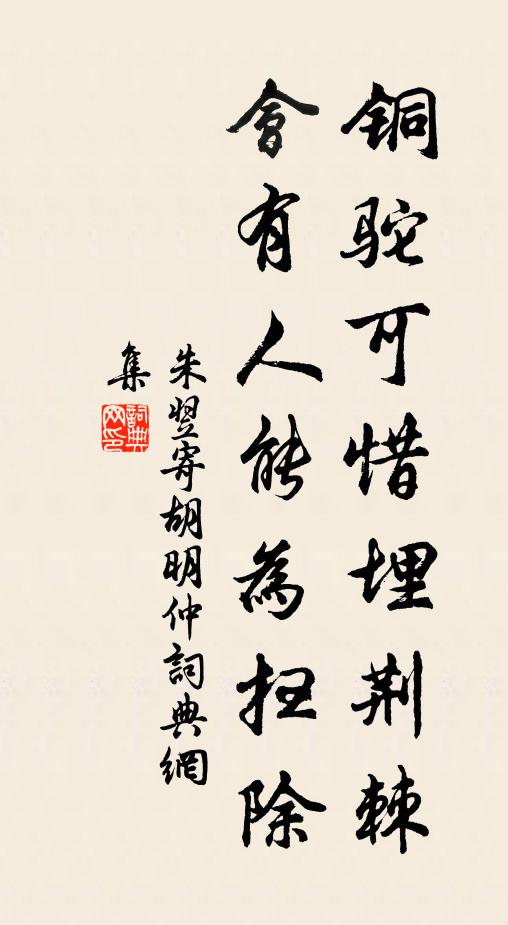 铜驼可惜埋荆棘
會有人能為扫除
朱翌寄胡明仲詞典網
集
詞典
网印